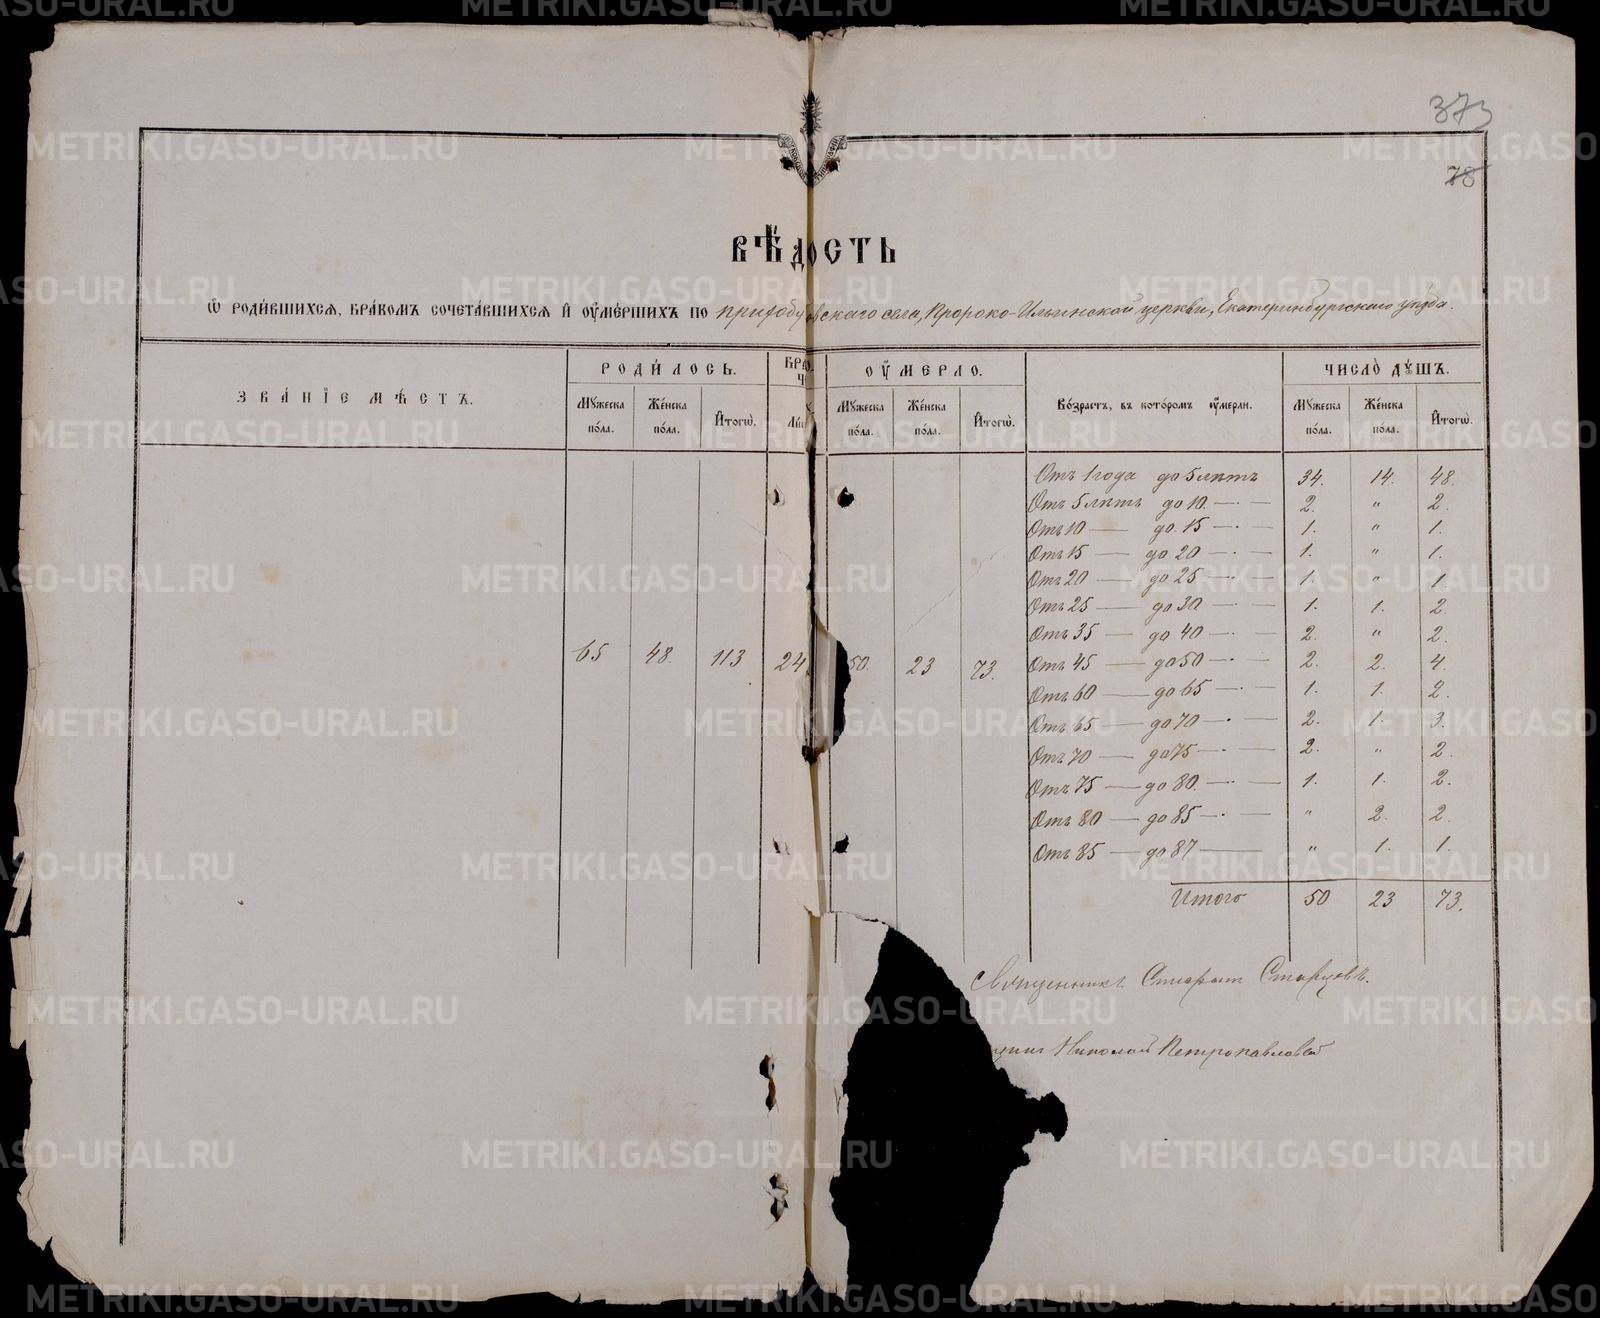 373
78
ВѢДОСТЬ
Ѿ РОДИ́ВШИХСЯ, БРА́КОМЪ СОЧЕТА́ВШИХСЯ И҆ ОУ҆МЕ́РШИХЪ ПО Пророко-Ильинской церкви, Екатеринбургскаго уѣзда.
ЗВА́НІЕ МѢ́СТЪ.
РОДИ́ЛОСЬ.
Му́жеска по́ла.
Же́нска по́ла.
И҆тогѡ̀.
ОУ҆́МЕРЛО.
Му́жеска по́ла.
Же́нска по́ла.
И҆тогѡ̀.
Во́зрастъ, въ кото́ромъ оу҆́мерли.
ЧИСЛО̀ ДУ́ШЪ.
Му́жеска по́ла.
Же́нска по́ла.
И҆тогѡ̀.
65 48. 113 24 50. 23 73.
Отъ 1 года до 5 лѣтъ 34. 14. 48.
Отъ 5 лѣтъ до 10. — · — 2. " 2.
Отъ 10 — до 15 — · — 1. " 1.
Отъ 15 — до 20 — · — 1. " 1.
Отъ 20 — до 25 — · — 1. " 1.
Отъ 25 — до 30 — · — 1. 1. 2.
Отъ 35 — до 40 — · — 2. " 2.
Отъ 45 — до 50 — · — 2. 2. 4.
Отъ 60 — до 65 — · — 1. 1. 2.
Отъ 65 — до 70 — · — 2. 1. 3.
Отъ 70 — до 75 — · — 2. " 2.
Отъ 75 — до 80. — · — 1. 1. 2.
Отъ 80 — до 85 — · — " 2. 2.
Отъ 85 — до 87 — " 1. 1.
Итого 50 23 73.
Священникъ Старцовъ.
Николай Петропавловск
METRIKI.GASO-URAL.RU